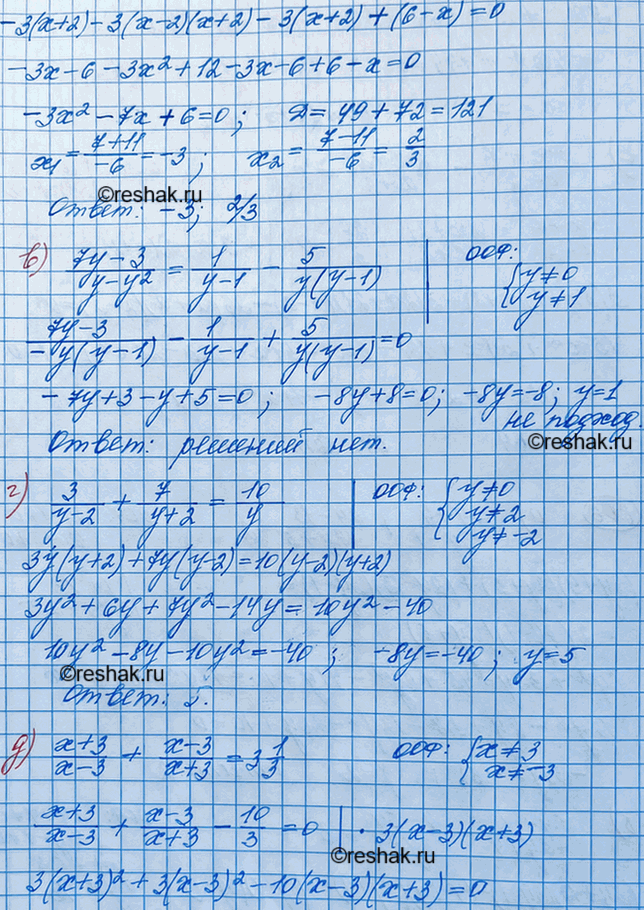 -3(x+2)-3(x-2)(x+2)-3(x+2)+(6-x)=0
-3x-6-3x²+12-3x-6+6-x=0
-3x²-7x+6=0; D=49+72=121
x₁=(7+11)/(-6)=-3; x₂=(7-11)/(-6)=2/3
©reshak.ru
Ответ: -3; 2/3
в) (7y-3)/(y-y²)=1/(y-1)-5/(y(y-1)) | ООФ: {y≠0 y≠1
(7y-3)/(-y(y-1))-1/(y-1)+5/(y(y-1))=0
-7y+3-y+5=0; -8y+8=0; -8y=-8; y=1
не подход.
Ответ: решений нет.
©reshak.ru
г) 3/(y-2)+7/(y+2)=10/y | ООФ: {y≠0 y≠2 y≠-2
3y(y+2)+7y(y-2)=10(y-2)(y+2)
3y²+6y+7y²-14y=10y²-40
10y²-8y-10y²=-40; -8y=-40; y=5
©reshak.ru
Ответ: 5.
д) (x+3)/(x-3)+(x-3)/(x+3)=3 1/3 ООФ: {x≠3 x≠-3
(x+3)/(x-3)+(x-3)/(x+3)-10/3=0 | ·3(x-3)(x+3)
©reshak.ru
3(x+3)²+3(x-3)²-10(x-3)(x+3)=0